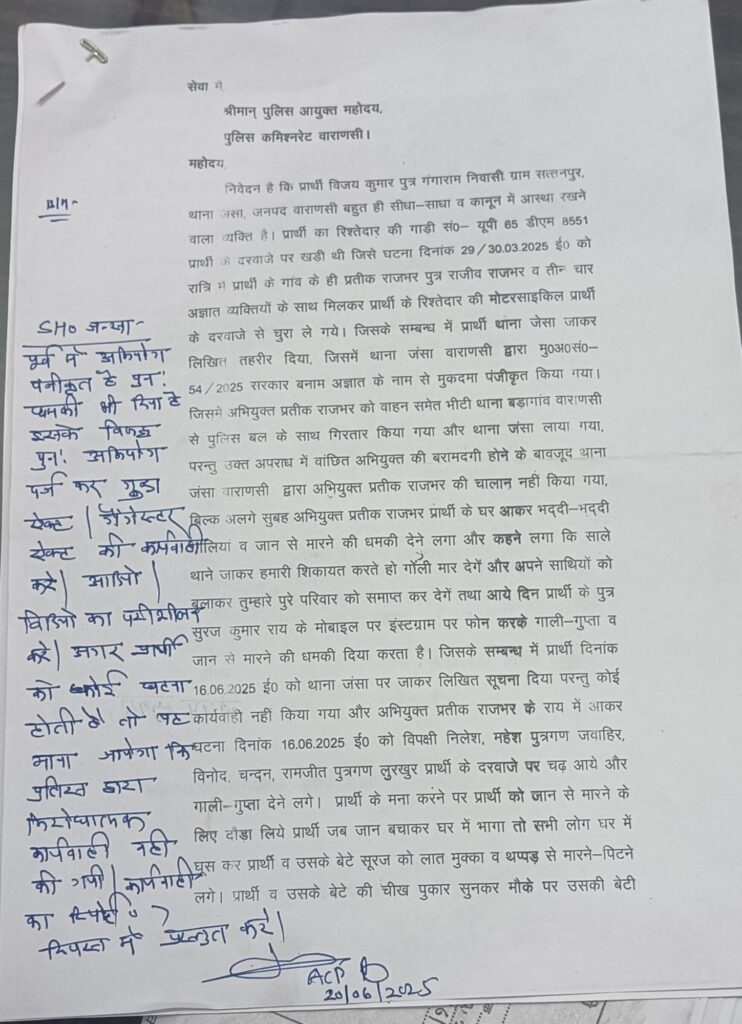 सेवा में,
श्रीमान् पुलिस आयुक्त महोदय,
पुलिस कमिश्नरेट वाराणसी।
महोदय,
निवेदन है कि प्रार्थी विजय कुमार पुत्र गंगाराम निवासी ग्राम सत्तनपुर,
थाना जंसा, जनपद वाराणसी बहुत ही सीधा-साधा व कानून में आस्था रखने
वाला व्यक्ति है। प्रार्थी का रिश्तेदार की गाड़ी सं0- यूपी 65 डीएम 8551
प्रार्थी के दरवाजे पर खडी थी जिसे घटना दिनांक 29/30.03.2025 ई0 को
रात्रि में प्रार्थी के गांव के ही प्रतीक राजभर पुत्र राजीव राजभर व तीन चार
अज्ञात व्यक्तियों के साथ मिलकर प्रार्थी के रिश्तेदार की मोटरसाइकिल प्रार्थी
के दरवाजे से चुरा ले गये। जिसके सम्बन्ध में प्रार्थी थाना जंसा जाकर
लिखित तहरीर दिया, जिसमें थाना जंसा वाराणसी द्वारा मु0अ0सं0-
54/2025 सरकार बनाम अज्ञात के नाम से मुकदमा पंजीकृत किया गया।
जिसमे अभियुक्त प्रतीक राजभर को वाहन समेत भीटी थाना बड़ागांव वाराणसी
से पुलिस बल के साथ गिरतार किया गया और थाना जंसा लाया गया,
परन्तु उक्त अपराध में वांछित अभियुक्त की बरामदगी होने के बावजूद थाना
जंसा वाराणसी द्वारा अभियुक्त प्रतीक राजभर की चालान नहीं किया गया,
बिल्क अलगे सुबह अभियुक्त प्रतीक राजभर प्रार्थी के घर आकर भद्दी-भद्दी
गालियां व जान से मारने की धमकी देने लगा और कहने लगा कि साले
थाने जाकर हमारी शिकायत करते हो गोली मार देगें और अपने साथियों को
बुलाकर तुम्हारे पुरे परिवार को समाप्त कर देगें तथा आये दिन प्रार्थी के पुत्र
सुरज कुमार राय के मोबाइल पर इंस्टग्राम पर फोन करके गाली-गुप्ता व
जान से मारने की धमकी दिया करता है। जिसके सम्बन्ध में प्रार्थी दिनांक
16.06.2025 ई0 को थाना जंसा पर जाकर लिखित सूचना दिया परन्तु कोई
कार्यवाही नहीं किया गया और अभियुक्त प्रतीक राजभर के राय में आकर
घटना दिनांक 16.06.2025 ई0 को विपक्षी निलेश, महेश पुत्रगण जवाहिर,
विनोद, चन्दन, रामजीत पुत्रगण लुरखुर प्रार्थी के दरवाजे पर चढ़ आये और
गाली-गुप्ता देने लगे। प्रार्थी के मना करने पर प्रार्थी को जान से मारने के
लिए दौड़ा लिये प्रार्थी जब जान बचाकर घर में भागा तो सभी लोग घर में
घूस कर प्रार्थी व उसके बेटे सूरज को लात मुक्का व थप्पड़ से मारने-पिटने
लगे। प्रार्थी व उसके बेटे की चीख पुकार सुनकर मौके पर उसकी बेटी
SHO जन्सा-
पूर्व में अभियोग
पंजीकृत है पुनः
धमकी भी दिया है
इसके विरुद्ध
पुनः अभियोग
दर्ज कर गुण्डा
ऐक्ट / गैंगेस्टर
ऐक्ट की कार्यवाही
करें। आडियो /
विडियो का परिशीलन
करें। अगर प्रार्थी
को कोई घटना
होती है तो यह
माना जायेगा कि
पुलिस द्वारा
निरोधात्मक
कार्यवाही नही
की गयी। कार्यवाही
का रिपोर्ट 07
दिवस में प्रस्तुत करें।
ACP
20/06/2025